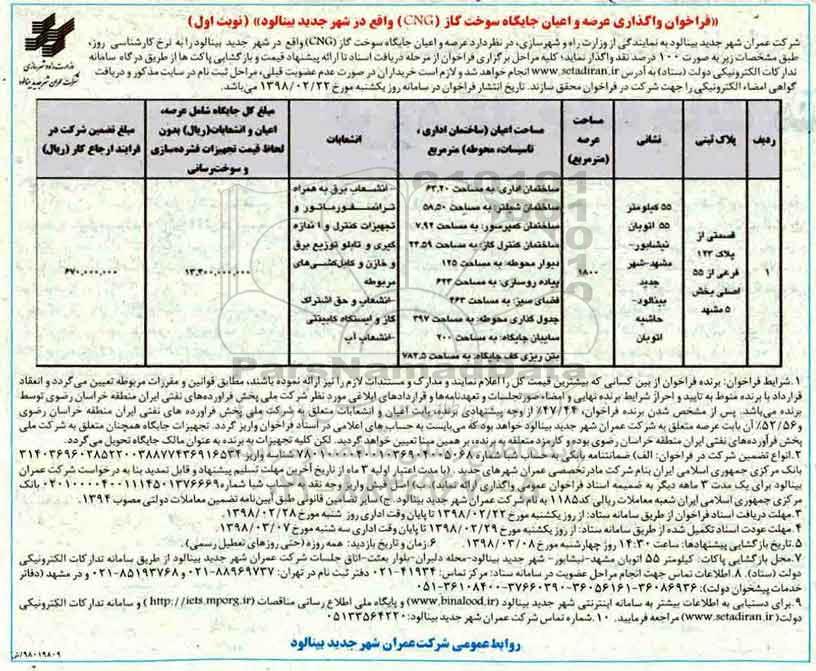 «فراخوان واگذاری عرصه و اعیان جایگاه سوخت گاز (CNG) واقع در شهر جدید بینالود» (نوبت اول)
وزارت راه و شهرسازی
شرکت عمران شهر جدید بینالود
شرکت عمران شهر جدید بینالود به نمایندگی از وزارت راه و شهرسازی، در نظر دارد عرصه و اعیان جایگاه سوخت گاز (CNG) واقع در شهر جدید بینالود را به نرخ کارشناسی روز،
طبق مشخصات زیر به صورت ۱۰۰ درصد نقد واگذار نماید؛ کلیه مراحل برگزاری فراخوان از مرحله دریافت اسناد تا ارائه پیشنهاد قیمت و بازگشایی پاکت ها از طریق درگاه سامانه
تدارکات الکترونیکی دولت (ستاد) به آدرس www.setadiran.ir انجام خواهد شد و لازم است خریداران در صورت عدم عضویت قبلی، مراحل ثبت نام در سایت مذکور و دریافت
گواهی امضاء الکترونیکی را جهت شرکت در فراخوان محقق سازند. تاریخ انتشار فراخوان در سامانه روز یکشنبه مورخ ۱۳۹۸/۰۲/۲۲ می‌باشد.
ردیف
پلاک ثبتی
نشانی
مساحت عرصه (مترمربع)
مساحت اعیان (ساختمان اداری، تاسیسات، محوطه) مترمربع
انشعابات
مبلغ کل جایگاه شامل عرصه، اعیان و انشعابات(ریال) بدون لحاظ قیمت تجهیزات فشرده‌سازی و سوخت‌رسانی
مبلغ تضمین شرکت در فرایند ارجاع کار (ریال)
۱
قسمتی از پلاک ۱۲۳ فرعی از ۵۵ اصلی بخش ۵ مشهد
۵۵ کیلومتر ۵۵ اتوبان نیشابور-مشهد-شهر جدید بینالود-حاشیه اتوبان
۱۸۰۰
ساختمان اداری: به مساحت ۶۳.۲۰
ساختمان شیلتر: به مساحت ۵۸.۵۰
ساختمان کمپرسور: به مساحت ۷.۹۲
ساختمان کنترل گاز: به مساحت ۲۴.۵۹
دیوار محوطه: به مساحت ۱۲۵
پیاده روسازی: به مساحت ۶۲۳
فضای سبز: به مساحت ۴۶۳
جدول گذاری محوطه: به مساحت ۳۹۷
سایبان جایگاه: به مساحت ۲۰۰
بتن ریزی کف جایگاه: به مساحت ۷۸۲.۵
-انشعاب برق به همراه ترانسفورماتور و تجهیزات کنترل و اندازه گیری و تابلو توزیع برق و خازن و کابل‌کشی‌های مربوطه
-انشعاب و حق اشتراک گاز و ایستگاه کابینتی
-انشعاب آب
۱۳,۳۰۰,۰۰۰,۰۰۰
۶۷۰,۰۰۰,۰۰۰
ParsNamadData
۱.شرایط فراخوان: برنده فراخوان از بین کسانی که بیشترین قیمت کل را اعلام نمایند و مدارک و مستندات لازم را نیز ارائه نموده باشند، مطابق قوانین و مقررات مربوطه تعیین می‌گردد و انعقاد
قرارداد با برنده منوط به تایید و احراز شرایط برنده نهایی و امضاء صورتجلسات و تعهدنامه‌ها و قراردادهای ابلاغی مورد نظر شرکت ملی پخش فراورده‌های نفتی ایران منطقه خراسان رضوی توسط
برنده می‌باشد. پس از مشخص شدن برنده فراخوان، ۴۷/۴۴٪ از وجه پیشنهادی برنده، بابت اعیان و انشعابات متعلق به شرکت ملی پخش فراورده های نفتی ایران منطقه خراسان رضوی
و ۵۲/۵۶٪ آن بابت عرصه متعلق به شرکت عمران شهر جدید بینالود خواهد بود که می‌بایست به حساب های اعلامی در اسناد فراخوان واریز گردد. تجهیزات جایگاه همچنان متعلق به شرکت ملی
پخش فرآورده‌های نفتی ایران منطقه خراسان رضوی بوده و کارمزد متعلقه به برنده، بر همین مبنا تعیین خواهد گردید. لکن کلیه تجهیزات به برنده به عنوان مالک جایگاه تحویل می‌گردد.
بانک مرکزی جمهوری اسلامی ایران بنام شرکت مادرتخصصی عمران شهرهای جدید . (با مدت اعتبار اولیه ۳ ماه از تاریخ آخرین مهلت تسلیم پیشنهاد و قابل تمدید بنا به درخواست شرکت عمران
مرکزی جمهوری اسلامی ایران شعبه معاملات ریالی کد۱۱۸۵ به نام شرکت عمران شهر جدید بینالود. ج) سایر تضامین قانونی طبق آیین‌نامه تضمین معاملات دولتی مصوب ۱۳۹۴.
۳.مهلت دریافت اسناد فراخوان از طریق سامانه ستاد: از روز یکشنبه مورخ ۱۳۹۸/۰۲/۲۲ تا پایان وقت اداری روز شنبه مورخ ۱۳۹۸/۰۲/۲۸
۴.مهلت عودت اسناد تکمیل شده از طریق سامانه ستاد: از روز یکشنبه مورخ ۱۳۹۸/۰۲/۲۹ تا پایان وقت اداری سه شنبه مورخ ۱۳۹۸/۰۳/۰۷.
۵.تاریخ بازگشایی پیشنهادها: ساعت ۱۴:۳۰ روز چهارشنبه مورخ ۱۳۹۸/۰۳/۰۸. ۶.زمان و تاریخ بازدید: همه روزه (حتی روزهای تعطیل رسمی).
۷.محل بازگشایی پاکات: کیلومتر ۵۵ اتوبان مشهد-نیشابور- شهر جدید بینالود-محله دلبران-بلوار بعثت-اتاق جلسات شرکت عمران شهر جدید بینالود از طریق سامانه تدارکات الکترونیکی
دولت (ستاد). ۸.اطلاعات تماس جهت انجام مراحل عضویت در سامانه ستاد: مرکز تماس: ۴۱۹۳۴-۰۲۱ دفتر ثبت نام در تهران: ۸۸۹۶۹۷۳۷-۰۲۱ و ۸۵۱۹۳۷۶۸-۰۲۱ و در مشهد (دفاتر
خدمات پیشخوان دولت): ۳۶۰۸۶۹۳۶-۳۶۰۵۶۱۶۱-۳۷۶۶۰۳۹۰-۳۶۱۰۸۴۰۰-۰۵۱
۹.برای دستیابی به اطلاعات بیشتر به سامانه اینترنتی شهر جدید بینالود (www.binalood.ir) و پایگاه ملی اطلاع رسانی مناقصات (http://iets.mporg.ir) و سامانه تدارکات الکترونیکی
دولت( www.setadiran.ir) مراجعه فرمایید. ۱۰.شماره تماس شرکت عمران شهر جدید بینالود: ۰۵۱۳۳۵۶۴۲۲۰
روابط عمومی شرکت عمران شهر جدید بینالود
۹۸۰۱۹۸۰۹/ش